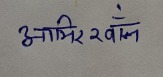 आमिर खाँन